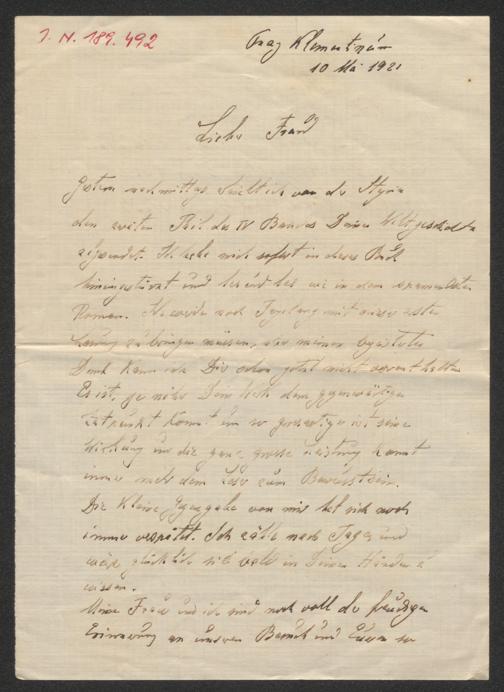 I. N. 189.492
Graz Klemenstraße
10 Mai 1921
Lieber Freund
Gestern nachmittag erhielt ich von der Styria
den zweiten Teil des IV Bandes Deiner Weltgeschichte
zugesendet. Ich habe mich sofort in dieses Buch
hineingestürzt und lese wie in dem spannendsten
Roman. Ich werde noch Tagelang mit dieser ersten
Lesung zubringen müssen, aber meinen begeisterten
Dank kann ich Dir schon jetzt nicht vorenthalten
Es ist, je näher Dein Buch dem gegenwärtigen
Zeitpunkt kommt um so großartiger ist seine
Wirkung und die ganz grosse Leistung kommt
immer mehr dem Leser zum Bewusstsein.
Die kleine Gegengabe von mir hat sich noch
immer verspätet. Ich zähle nach Tagen und
wäre glücklich sie bald in Deinen Händen zu
wissen.
Meine Frau und ich sind noch voll der freudigen
Erinnerung an unseren Besuch und Euern so